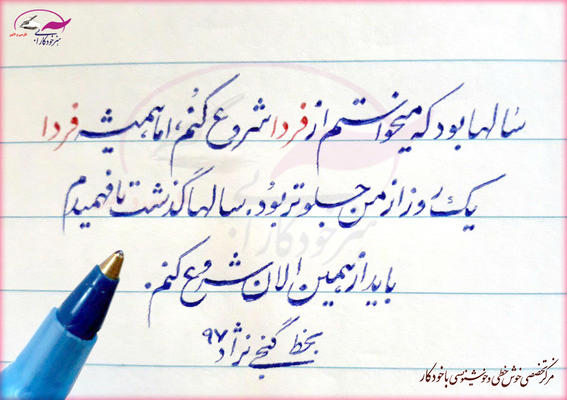 هنر خودکاری
سالها بود که میخواستم از فردا شروع کنم، اما همیشه فردا
یک روز از من جلوتر بود. سالها گذشت تا فهمیدم
باید از همین الان شروع کنم.
بخط گنجی نژاد ۹۷
مرکز تخصصی خوش خطی و خوشنویسی با خودکار